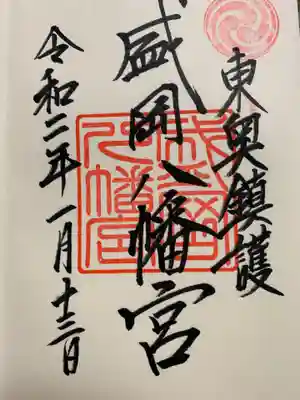 東奥鎮護
盛岡八幡宮
令和二年一月十三日
盛岡八幡宮